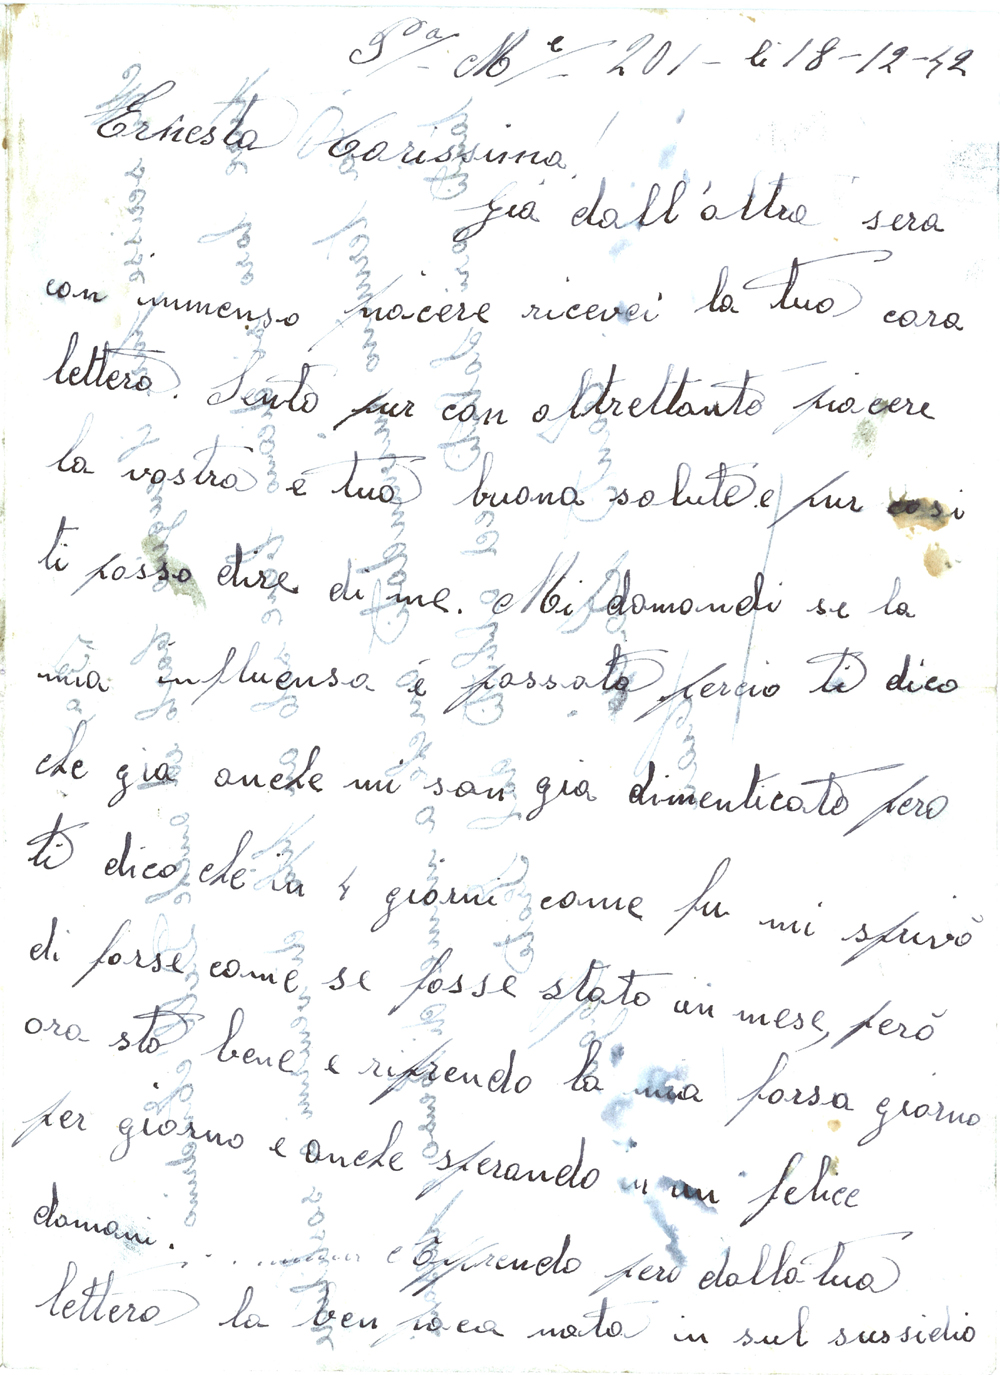 Pa/- Me/- 201 - li 18-12-42
Ernesta Carissima!
Già dall'altra sera
con immenso piacere ricevei la tua cara
lettera. Sento pur con altrettanto piacere
la vostra e tua buona salute e pur cosi
ti posso dire di me. Mi domandi se la
mia influensa è passata percio ti dico
che gia anche mi son gia dimenticato pero
ti dico che in 4 giorni come fu mi sprivò
di forse come se fosse stato un mese, però
ora stò bene e riprendo la mia forsa giorno
per giorno e anche sperando in un felice
domani. . . . . . . . . . . Apprendo pero dalla tua
lettera la ben poca nota in sul sussidio